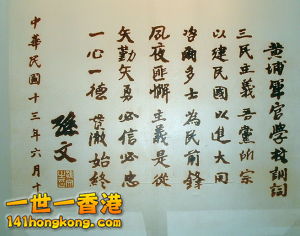 黃埔軍官學校訓詞
三民主義吾黨所宗
以建民國以進大同
咨爾多士為民前鋒
夙夜匪懈主義是從
矢勤矢勇必信必忠
一心一德貫徹始終
孫文
中華民國十三年六月十
一世一香港
141hongkong.com